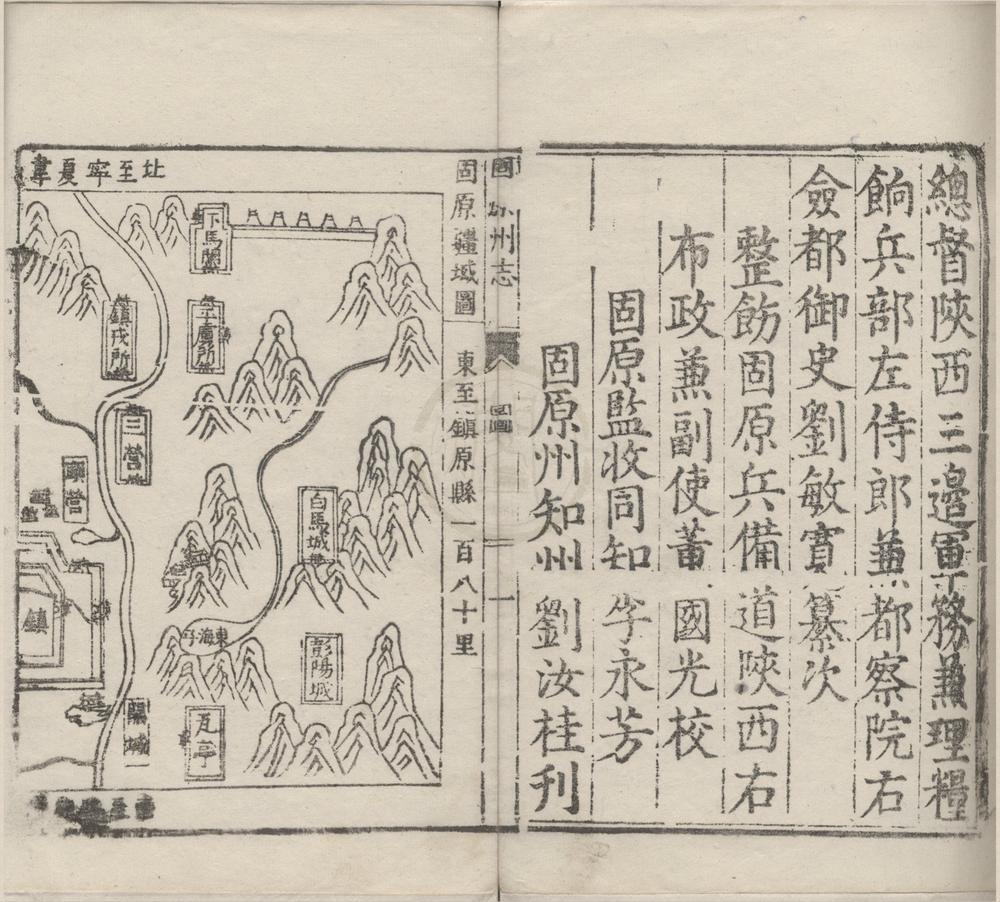 總督陝西三邊軍務兼理糧
餉兵部左侍郎兼都察院右
僉都御史劉敏寬纂次
整飭固原兵備道陝西右
布政兼副使董國光校
固原監收同知李永芳
固原州知州劉汝桂刊
固原州志
圖
一
固原疆域圖
東至鎮原縣一百八十里
北至寧夏韋
下馬關
平虜所
鎮戎所
三營
白馬城
東海子
彭陽城
瓦亭
鎮